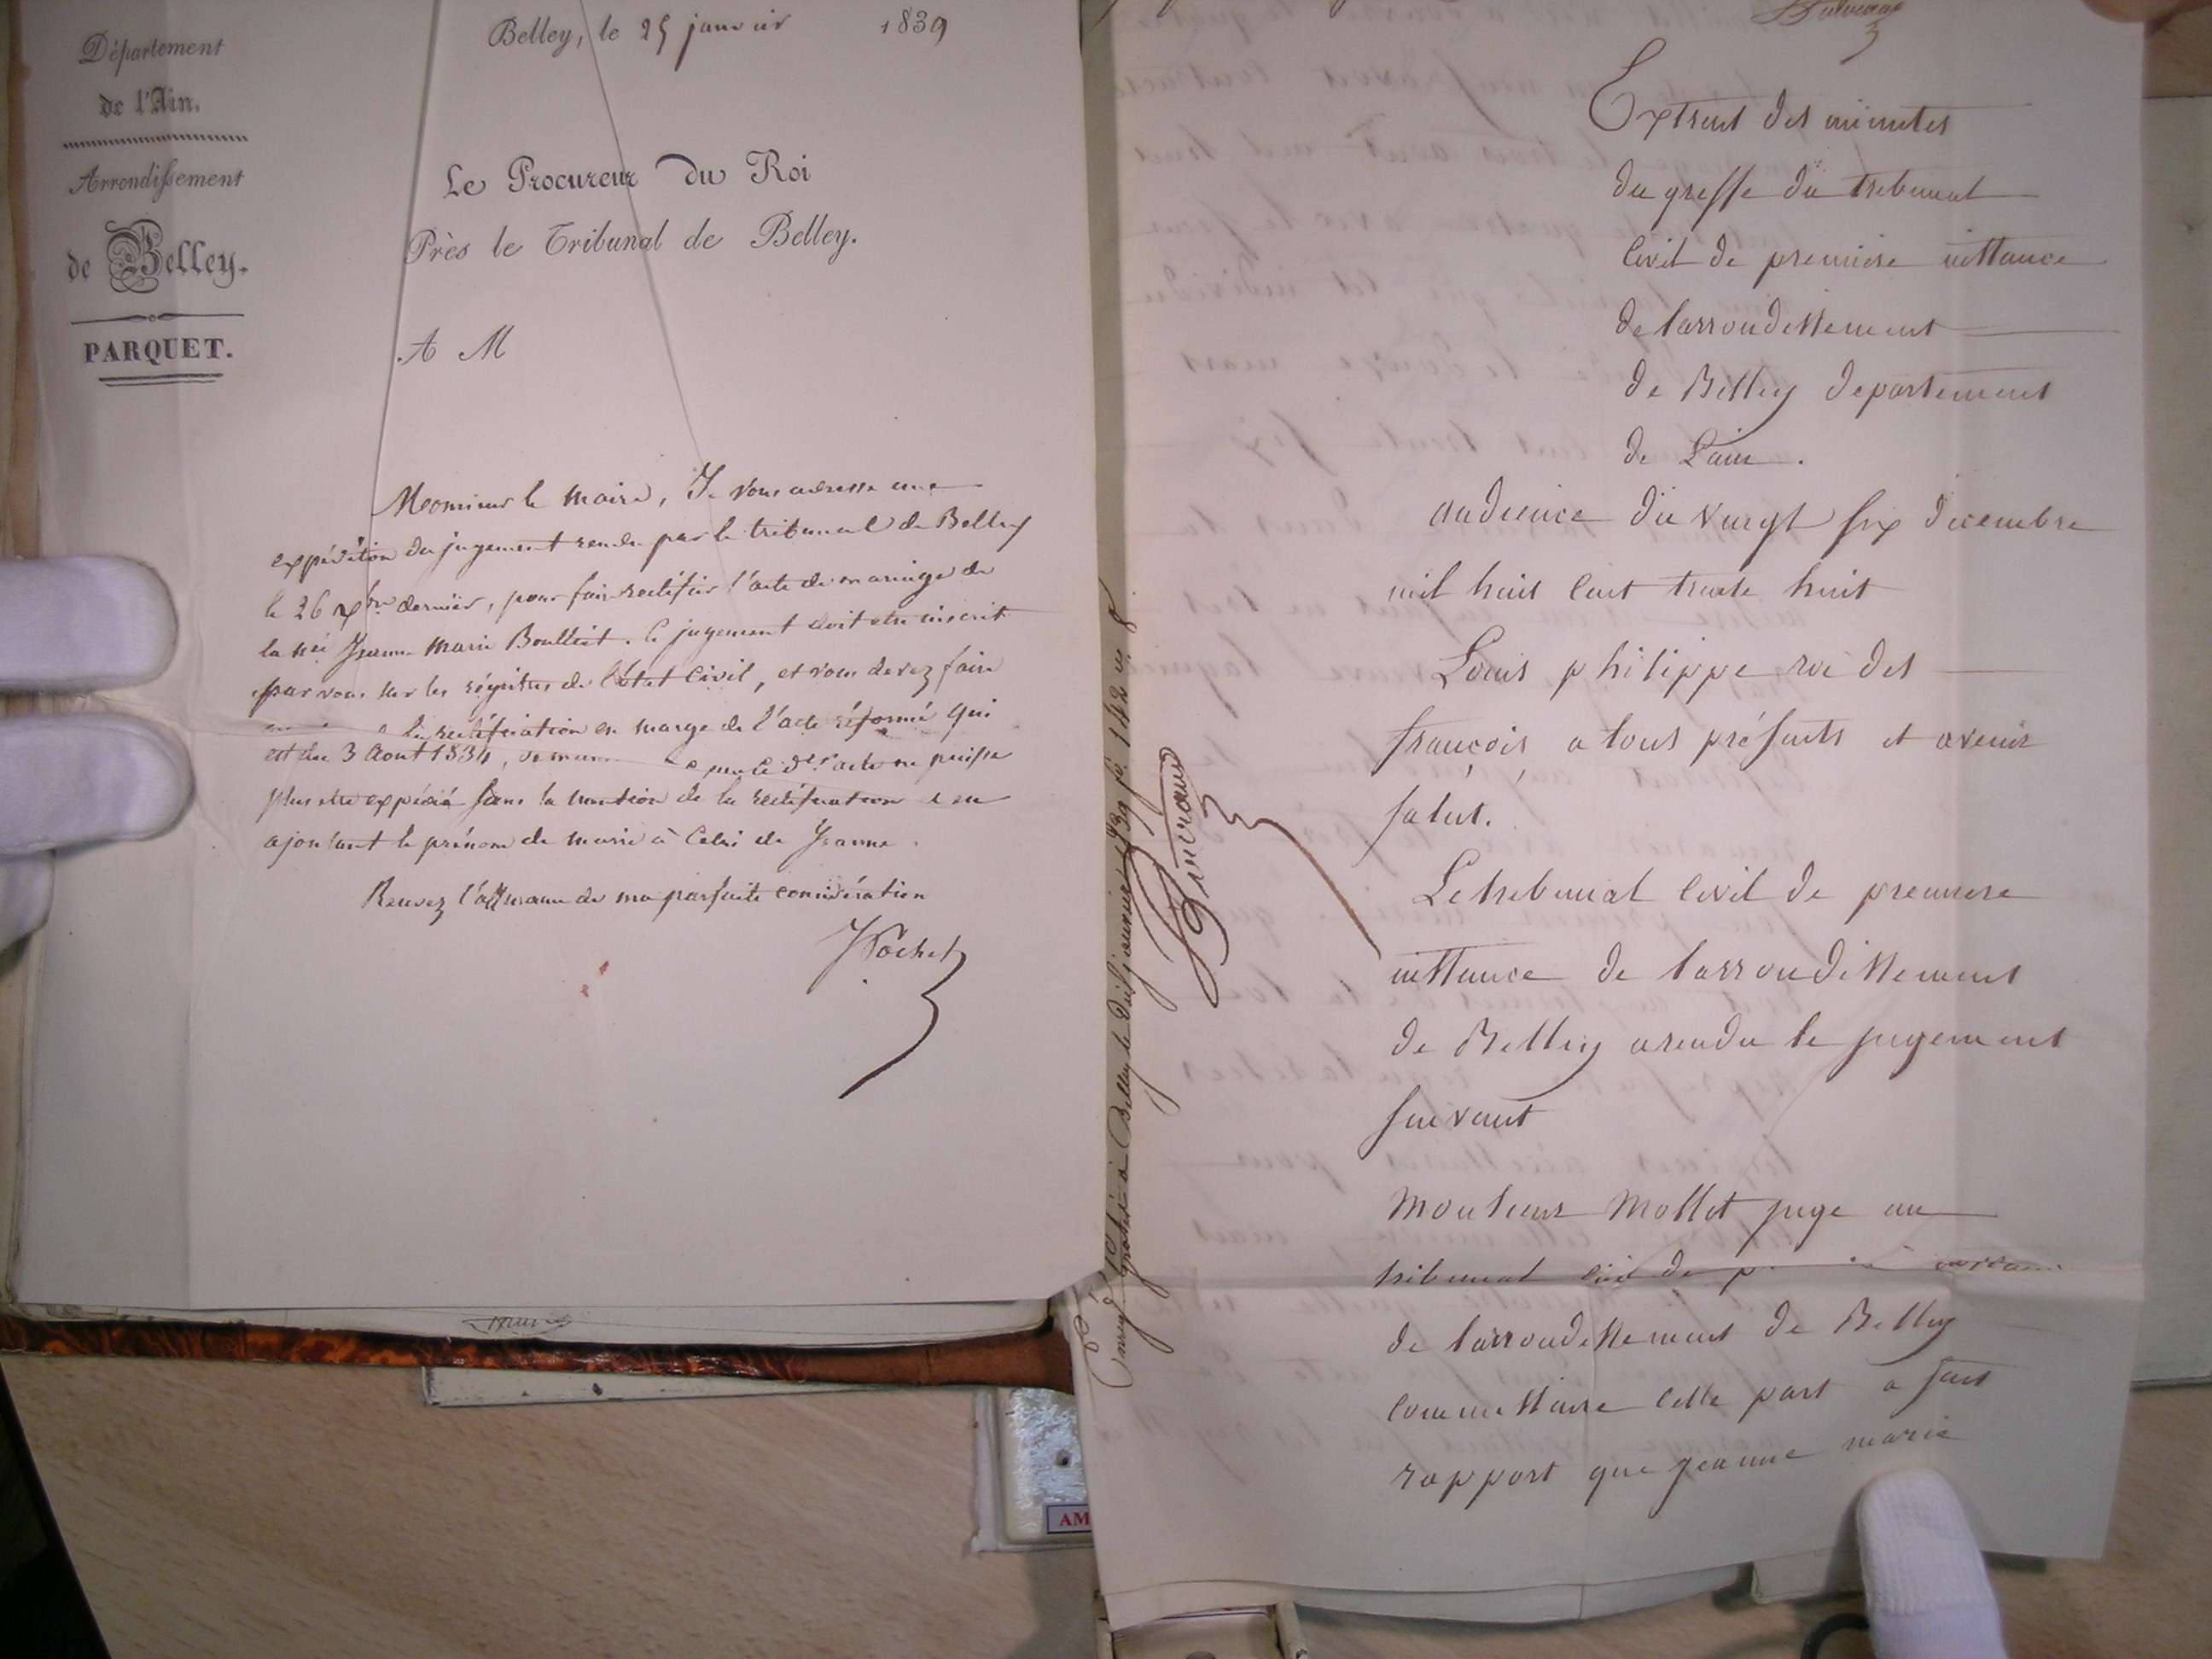 Département
de l'Ain.
Arrondissement
de Belley.
PARQUET.
Belley, le 25 janvier 1839
Le Procureur du Roi
Près le Tribunal de Belley.
A M
Monsieur le Maire, Je vous adresse une
expédition du jugement rendu par le tribunal de Belley
le 26 xbre dernier, pour faire rectifier l'acte de mariage de
la née Jeanne Marie Boulliet. Ce jugement doit etre inscrit
par vous sur les régistres de l'état Civil, et vous devez faire
la rectification en marge de l'acte réformé qui
est du 3 Aout 1834, de mani e que le dt acte ne puisse
plus etre expédié sans la mention de la rectification en
ajoutant le prénom de marie à Celui de Jeanne.
Recevez l'assurance de ma parfaite considération
Extrait des minutes
du greffe du tribunal
civil de premiere instance
de larrondissement
de Belley departement
de Lain.
audience du vingt six decembre
mil huit cent trente huit
Louis philippe roi des
françois a tous présents et avenir
salut.
Le tribunal civil de premiere
instance de larrondissement
de Belley a rendu le jugement
suivant
Monsieur Mollet juge au
tribunal civil de
de larrondissement de Belley
commissaire cette part a fait
rapport que jeanne marie
Enregistré à Belley le janvier 1839 fo 142
AM